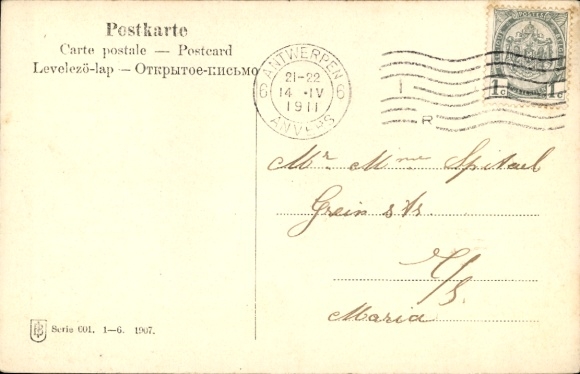 Postkarte
Carte postale — Postcard
Levelező-lap — Открытое-письмо
ANTWERPEN
21-22
6 14 · IV 6
1911
ANVERS
1
R
1c 1c
Mr Mme Spitael
Grein str
E/S
Maria
Serie 601. 1—6. 1907.